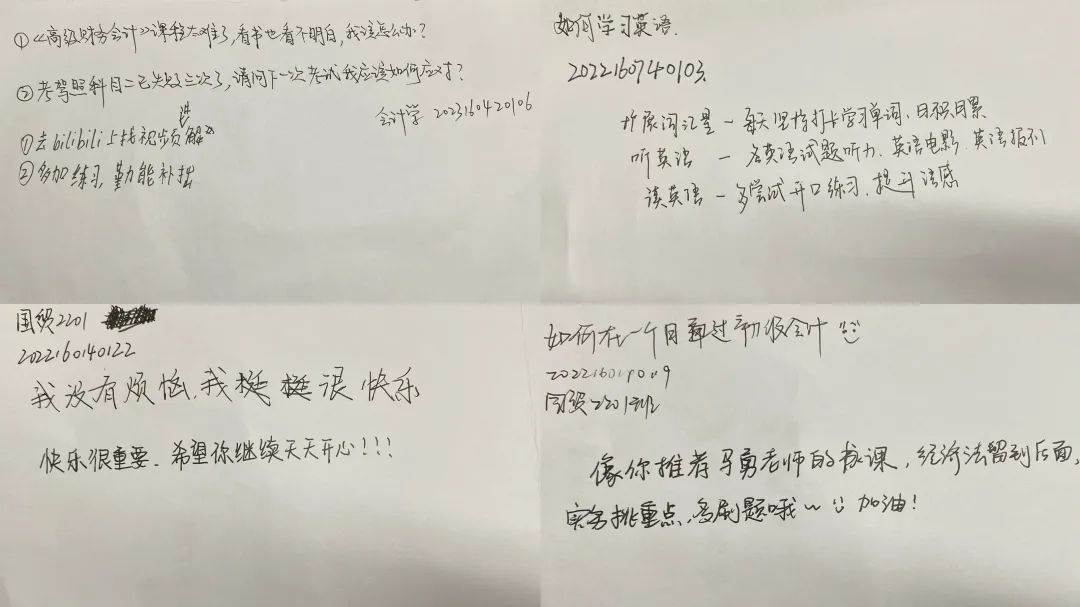 ①《高级财务会计》课程太难了,看书也看不明白,我该怎么办?
②考驾照科目二已失败三次了,请问下一次考试我应该如何应对?
会计学 2023160420106
①去bilibili上找视频讲解
②多加练习,勤能补拙
如何学习英语.
2022160740103.
扩展词汇量 — 每天坚持打卡学习单词、日积月累
听英语 — 各英语试题听力、英语电影、英语报刊
读英语 — 多尝试开口练习,提升语感
国贸2201
2022160140122
我没有烦恼,我挺挺很快乐
快乐很重要.希望你继续天天开心!!!
如何在一个月通过初级会计
国贸2201班
像你推荐马勇老师的课,经济法留到后面,
实务挑重点,多刷题哦~ 加油!